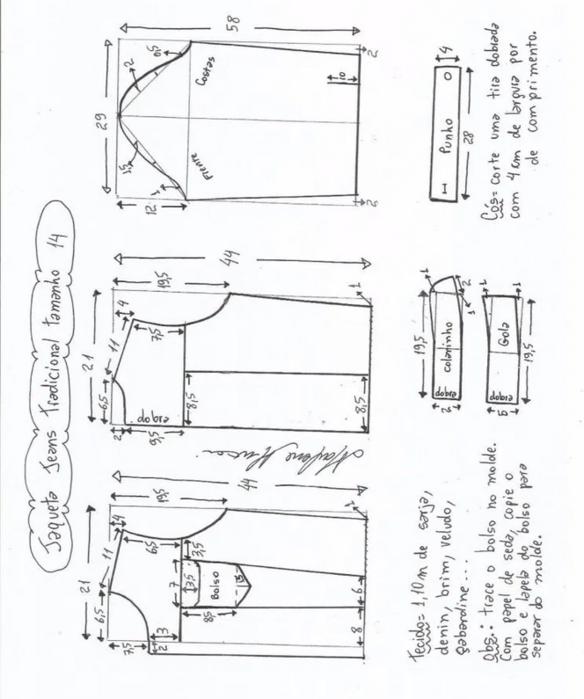 Jaqueta Jeans Tradicional tamanho 14
21
6,5
11
4
7,5
2
3
65
19,5
44
3,5
7
3,5
Bolso
8,5
1,5
8
6
1
21
6,5
11
4
2
9,5
dobra
7,5
19,5
44
8,5
8,5
1
29
12
1
1,5
2
0,5
58
Frente
Costas
10
2
2
Tecido= 1,10m de sarja,
denin, brim, veludo,
gabardine...
Obs.: trace o bolso no molde.
Com papel de seda, copie o
bolso e lapela do bolso para
separar do molde.
19,5
1
2
dobra
colarinho
2
1
1
dobra
Gola
5
1
19,5
4
Punho
28
Cós= corte uma tira dobrada
com 4 cm de largura por
de comprimento.